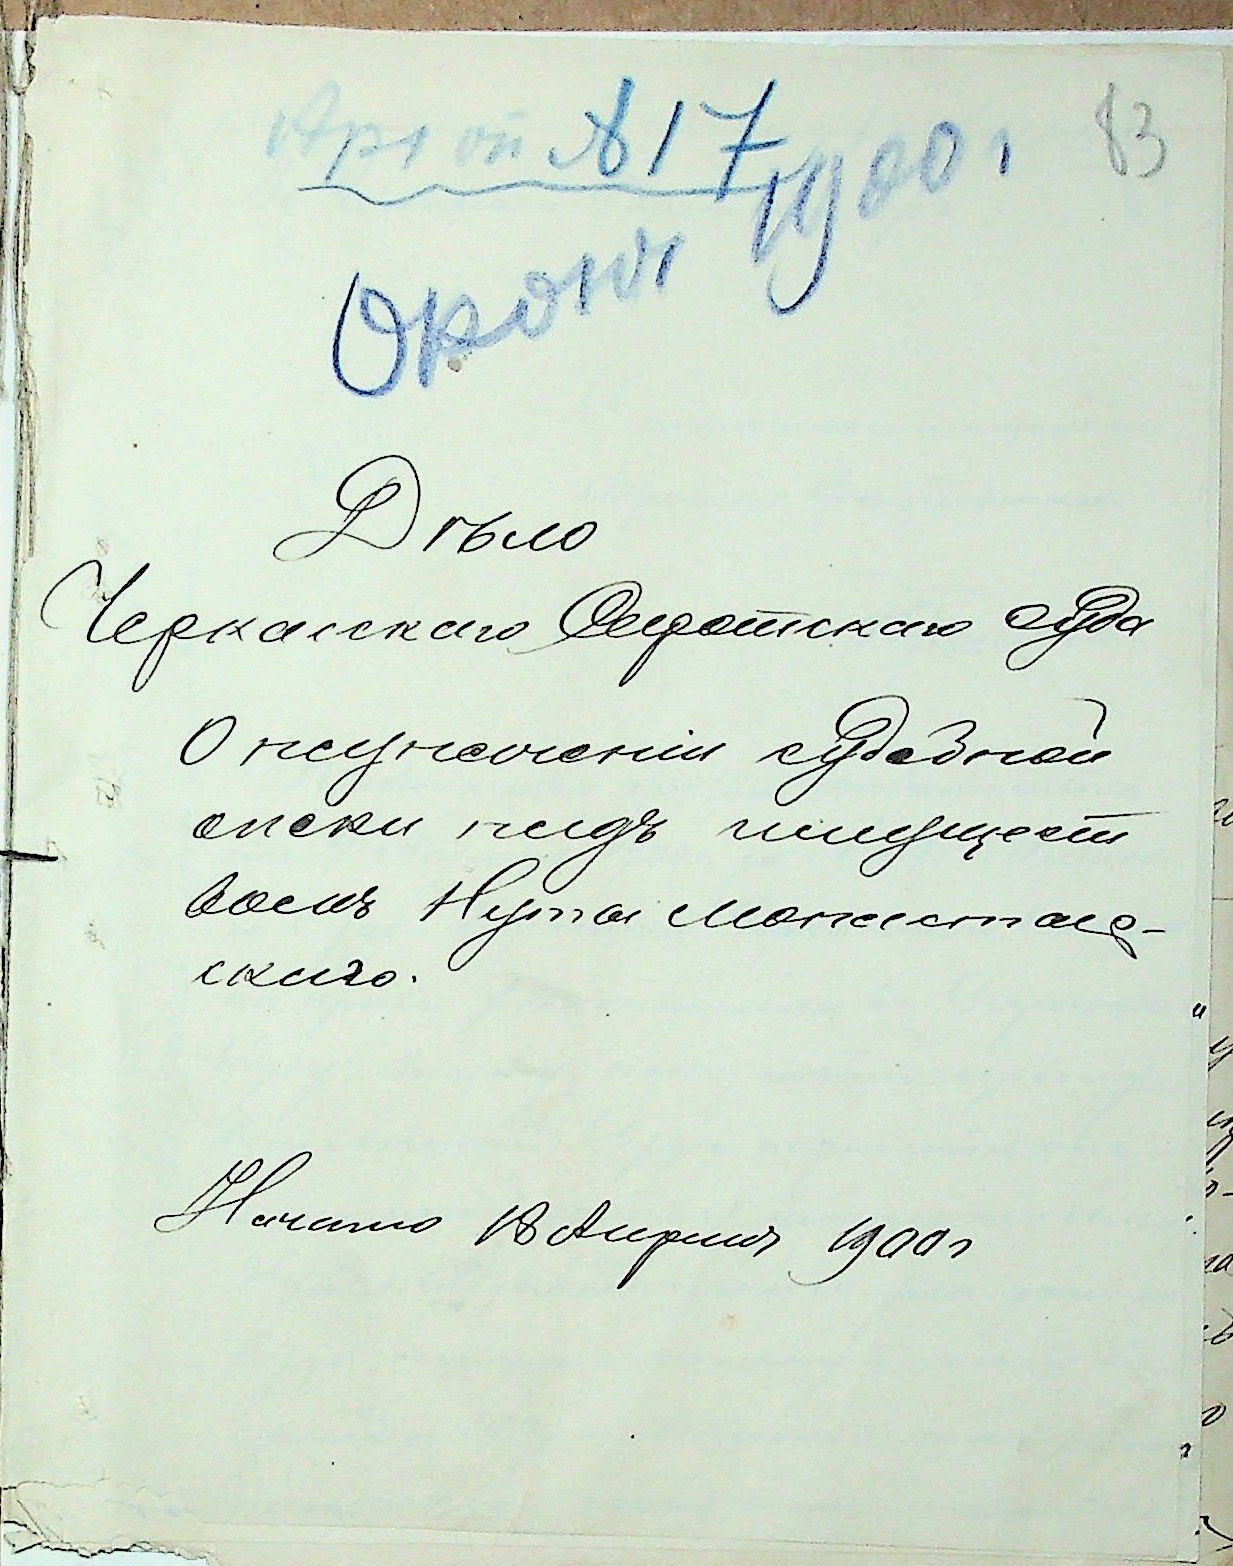 № 17
1900 г
83
Дѣло
Черкасскаго Сиротскаго Суда
О назначеніи Судебной
опеки надъ имущест
вомъ Нуты Монастыр-
скаго.
Начато 18 Апрѣля 1900 г